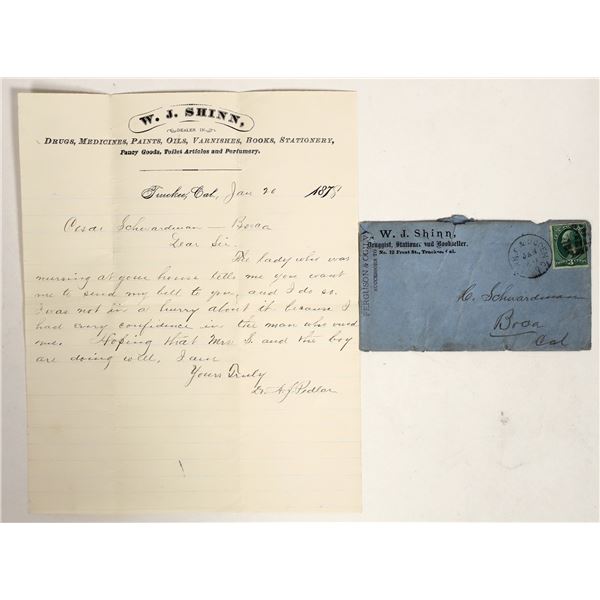 W. J. SHINN,
DEALER IN
DRUGS, MEDICINES, PAINTS, OILS, VARNISHES, BOOKS, STATIONERY,
Fancy Goods, Toilet Articles and Perfumery.
Truckee, Cal., Jan 20 1878
Cesar Schwardman — Boca
Dear Sir.
The lady who was
nursing at your house tells me you want
me to send my bill to you, and I do so.
I was not in a hurry about it because I
had every confidence in the man who owed
me. Hoping that Mrs S and the boy
are doing well, I am
Yours Truly
Pedlar
FERGUSON & OGILVY
SUCCESSORS TO
W. J. Shinn,
Druggist, Stationer and Bookseller.
No. 12 Front St., Truckee, Cal.
C. Schwardman
Boca
Cal